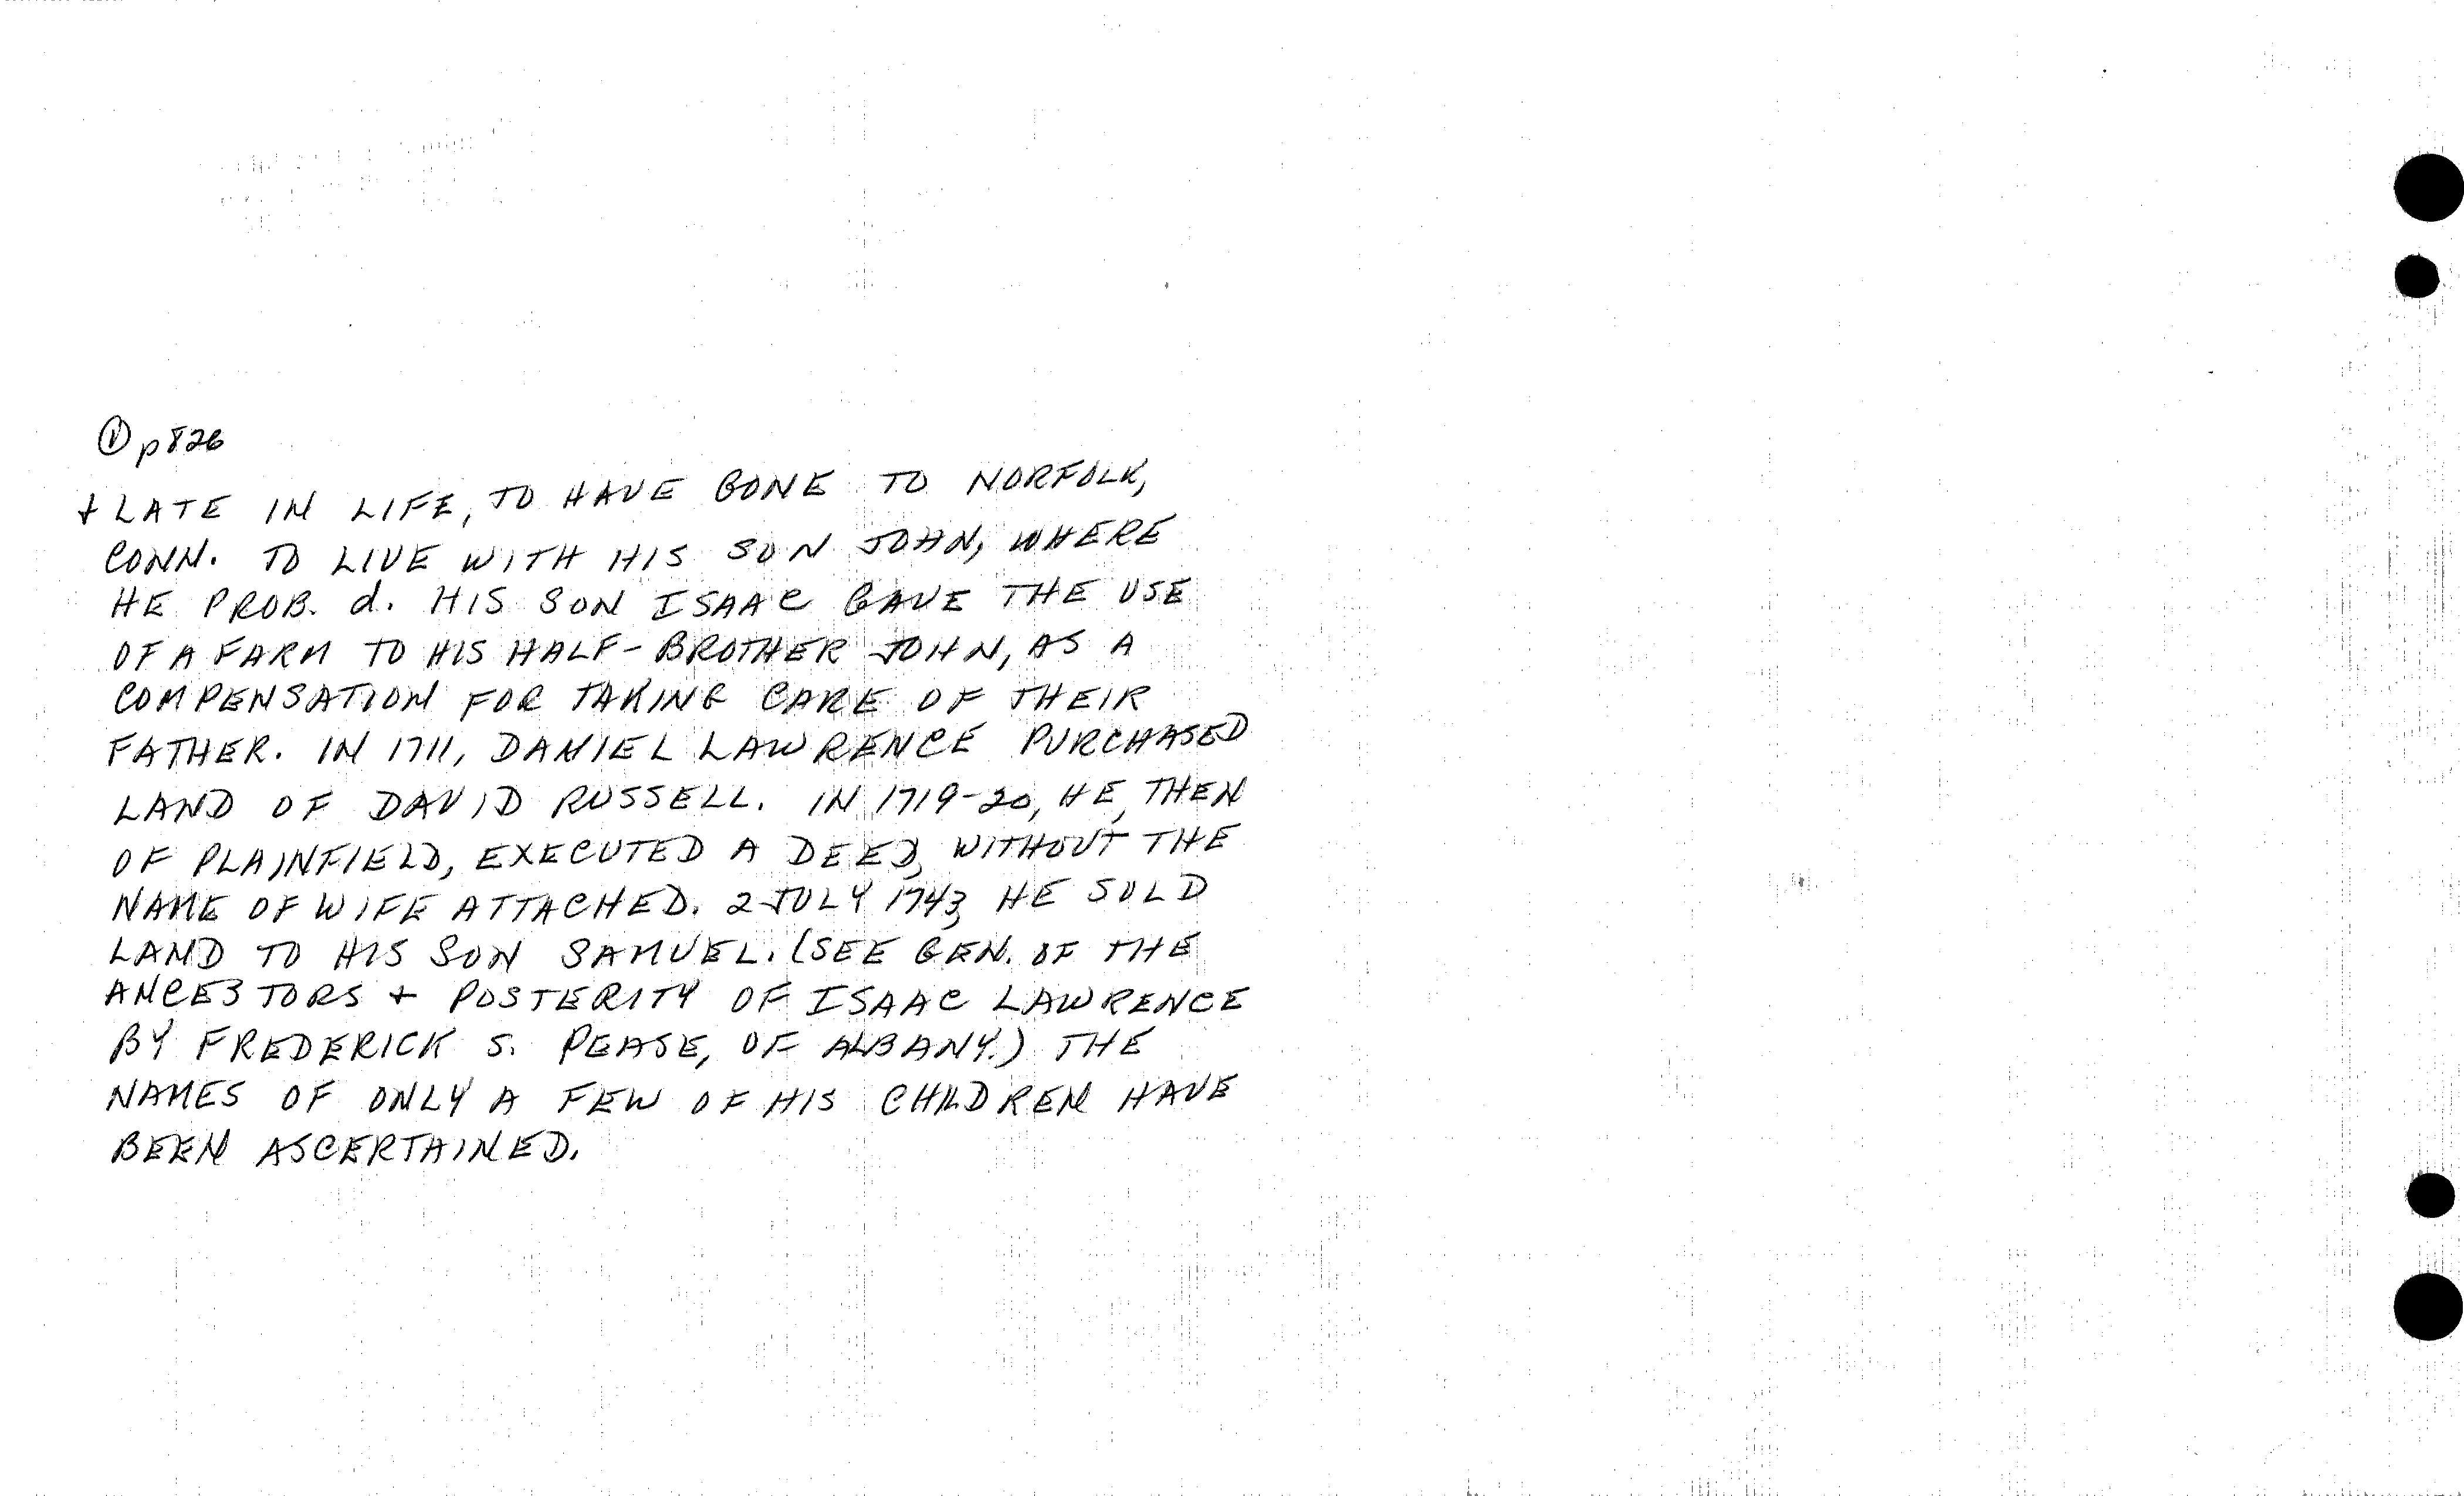 ① p 826
+ LATE IN LIFE, TO HAVE GONE TO NORFOLK,
CONN. TO LIVE WITH HIS SON JOHN, WHERE
HE PROB. d. HIS SON ISAAC GAVE THE USE
OF A FARM TO HIS HALF-BROTHER JOHN, AS A
COMPENSATION FOR TAKING CARE OF THEIR
FATHER. IN 1711, DANIEL LAWRENCE PURCHASED
LAND OF DAVID RUSSELL. IN 1719-20, HE, THEN
OF PLAINFIELD, EXECUTED A DEED, WITHOUT THE
NAME OF WIFE ATTACHED. 2 JULY 1743, HE SOLD
LAND TO HIS SON SAMUEL. (SEE GEN. OF THE
ANCESTORS + POSTERITY OF ISAAC LAWRENCE
BY FREDERICK S. PEASE, OF ALBANY.) THE
NAMES OF ONLY A FEW OF HIS CHILDREN HAVE
BEEN ASCERTAINED.